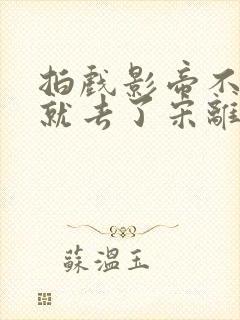 拍戲影帝不
就去了宋離
蘇溫玉